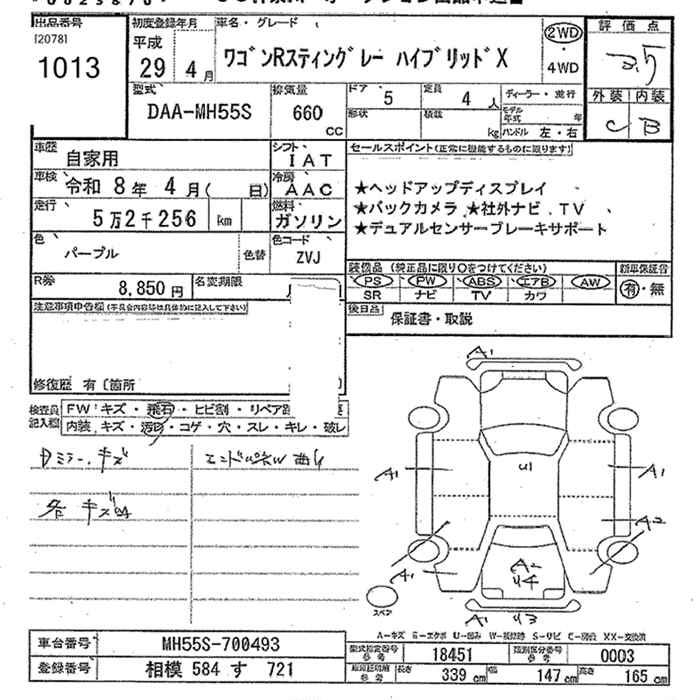 出品番号
[2078]
1013
初度登録年月
平成
29 年 4 月
車名・グレード
ワゴンRスティングレー ハイブリッドX
2WD
・
4WD
評価点
3.5
外装 内装
C B
型式
DAA-MH55S
排気量
660
cc
ドア 5
形状
定員 4 人
積載 kg
ディーラー・並行
モデル年式 年
ハンドル 左・右
車歴 自家用
シフト IAT
車検 令和 8 年 4 月( 日)
冷房 AAC
走行 5万2千256 km
燃料 ガソリン
色 パープル 色替
色コード ZVJ
R券 8,850 円 名変期限
セールスポイント(正常に機能するものに限ります)
★ヘッドアップディスプレイ
★バックカメラ ★社外ナビ、TV
★デュアルセンサーブレーキサポート
装備品(純正品に限り○をつけてください) 新車保証書
PS PW ABS エアB AW
SR ナビ TV カワ
有・無
後日品 保証書・取説
注意事項申告欄
修復歴 有〔箇所
検査員記入欄
FW キズ・飛石・ヒビ割・リペア跡
内装 キズ・汚れ・コゲ・穴・スレ・キレ・破レ
ミラー キズ
曲り
各 キズ
A1
U1
A1
A1
A2
A1
A2
U4
A1
A1 U3
スペア
A-キズ E-エクボ U-凹み W-補修跡 S-サビ C-腐食 XX-交換済
車台番号 MH55S-700493
登録番号 相模 584 す 721
型式指定番号 参考 18451
類別区分番号 参考 0003
長さ 339 cm 幅 147 cm 高さ 165 cm